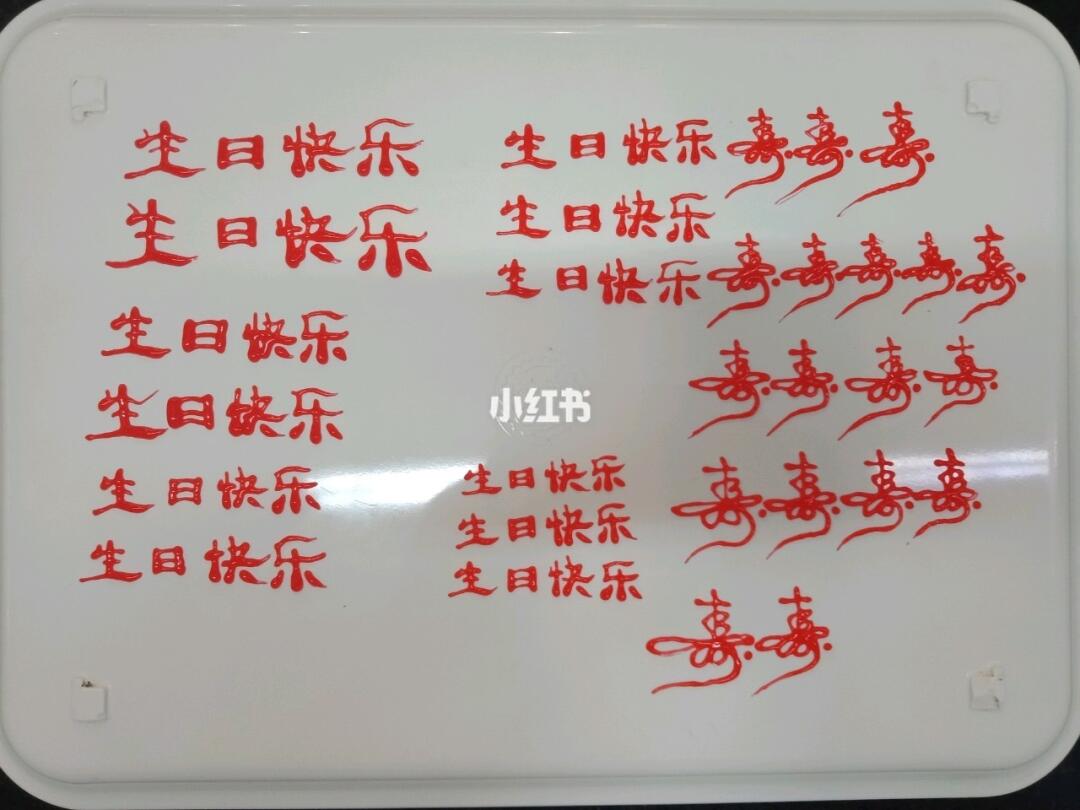 生日快乐
生日快乐
生日快乐
生日快乐
生日快乐
生日快乐
生日快乐 寿寿寿
生日快乐
生日快乐 寿寿寿寿寿
寿寿寿寿
小红书
寿寿寿寿
生日快乐
生日快乐
生日快乐
寿寿